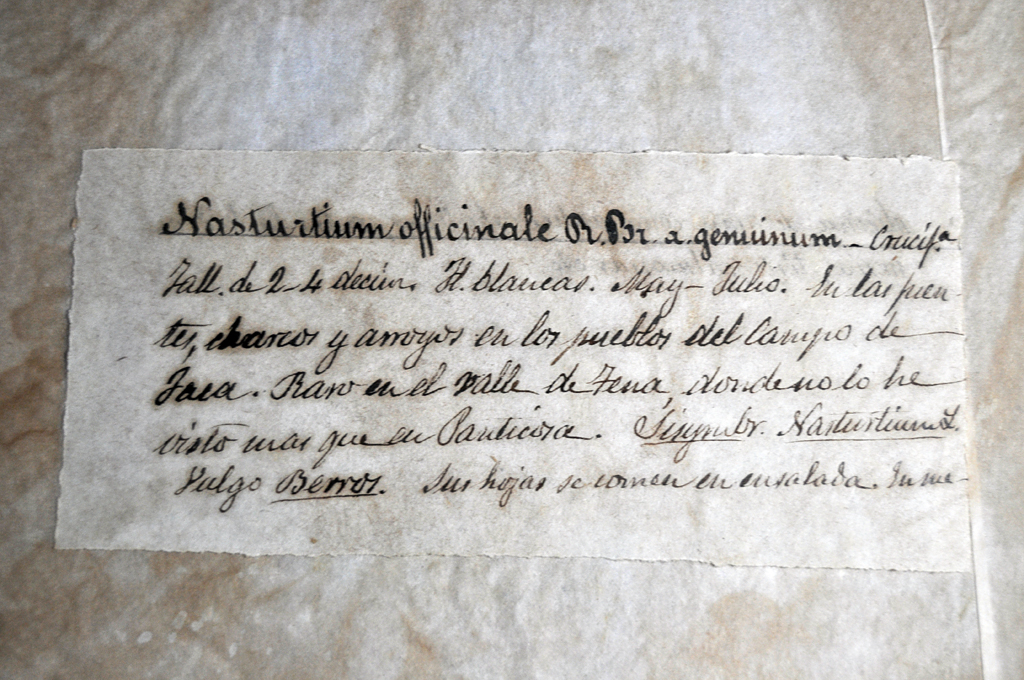 Nasturtium officinale R. Br. α. genuinum - Crucif.ª
Tall. de 2-4 decím. Fl. blancas. May - Julio. En las fuen-
tes, charcos y arroyos en los pueblos del Campo de
Jaca. Raro en el valle de Tena, donde no lo he
visto mas que en Panticosa. Sisymbr. Nasturtium L.
Vulgo Berros. Sus hojas se comen en ensalada. En me-